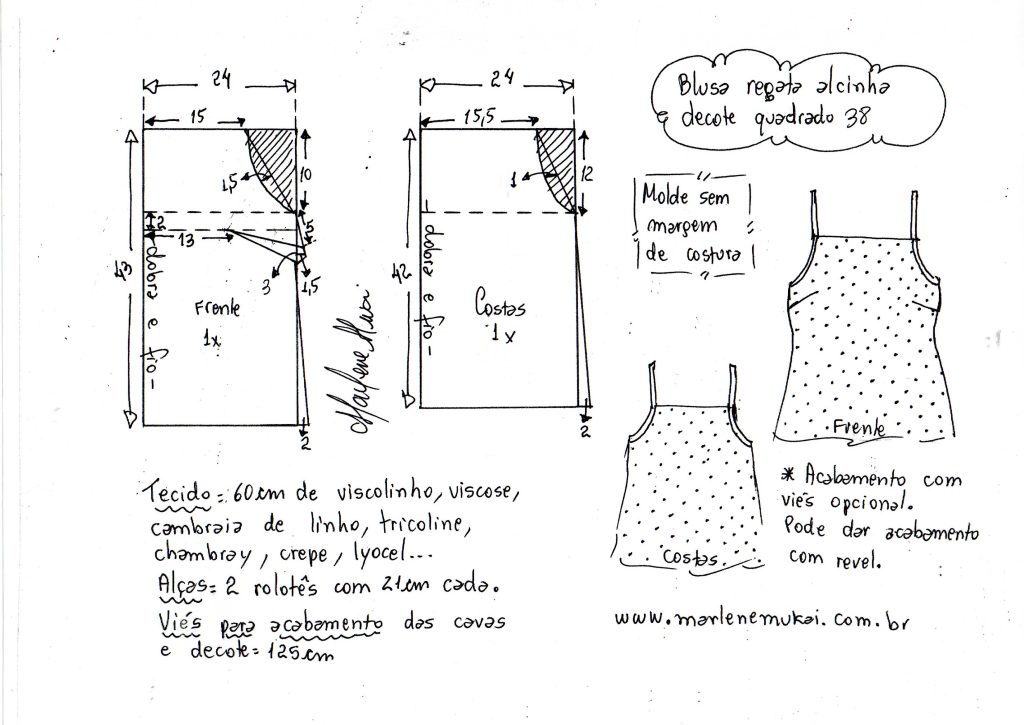 Blusa regata alcinha
decote quadrado 38
24
15
1,5
10
2
13
5
3
1,5
43
dobra e fio
Frente
1x
2
Marlene Mukai
24
15,5
1
12
42
dobra e fio
Costas
1x
2
Molde sem
margem
de costura
Frente
Costas
* Acabamento com
viés opcional.
Pode dar acabamento
com revel.
www.marlenemukai.com.br
Tecido = 60cm de viscolinho, viscose,
cambraia de linho, tricoline,
chambray, crepe, lyocel...
Alças = 2 rolotês com 21cm cada.
Viés para acabamento das cavas
e decote = 125cm